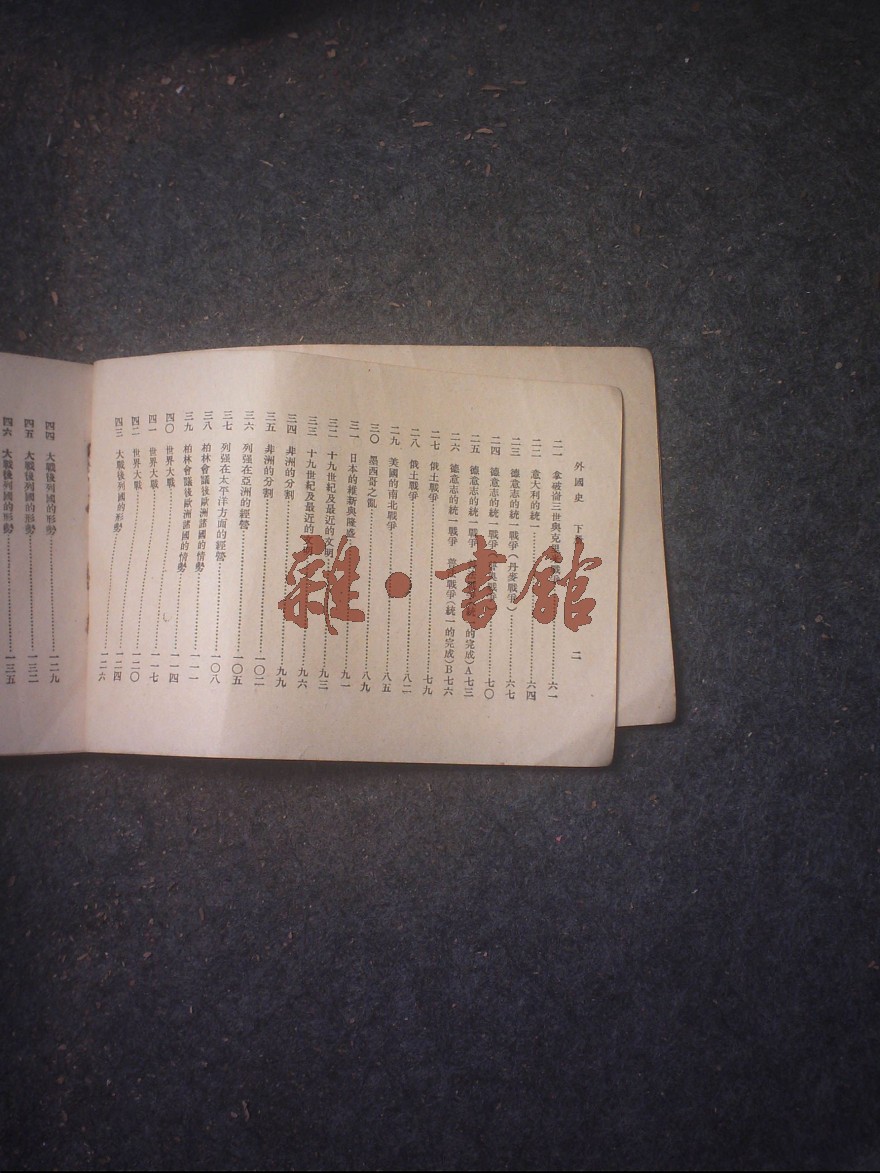 外國史 下 二
二一 拿破崙三世與克里 戰爭 六一
二二 意大利的統一 六四
二三 德意志的統一戰爭(丹麥戰爭) 六七
二四 德意志的統一戰爭 普奧戰 七〇
二五 德意志的統一戰爭 戰 統一的完成)A七三
二六 德意志的統一戰爭 普法戰爭(統一的完成)B七六
二七 俄土戰爭 七九
二八 俄土戰爭 八二
二九 美國的南北戰爭 八五
三〇 墨西哥之亂 八九
三一 日本的維新與隆盛 九一
三二 十九世紀及最近的文明 九三
三三 十九世紀及最近的文明 九六
三四 非洲的分割 九九
三五 非洲的分割 一〇二
三六 列强在亞洲的經營 一〇五
三七 列强在太平洋方面的經營 一〇八
三八 柏林會議後歐洲諸國的情勢 一一一
三九 柏林會議後歐洲諸國的情勢 一一四
四〇 世界大戰 一一七
四一 世界大戰 一二〇
四二 世界大戰 一二四
四三 大戰後列國的形勢 一二六
四四 大戰後列國的形勢 一二九
四五 大戰後列國的形勢 一三二
四六 大戰後列國的形勢 一三五
雜·書館